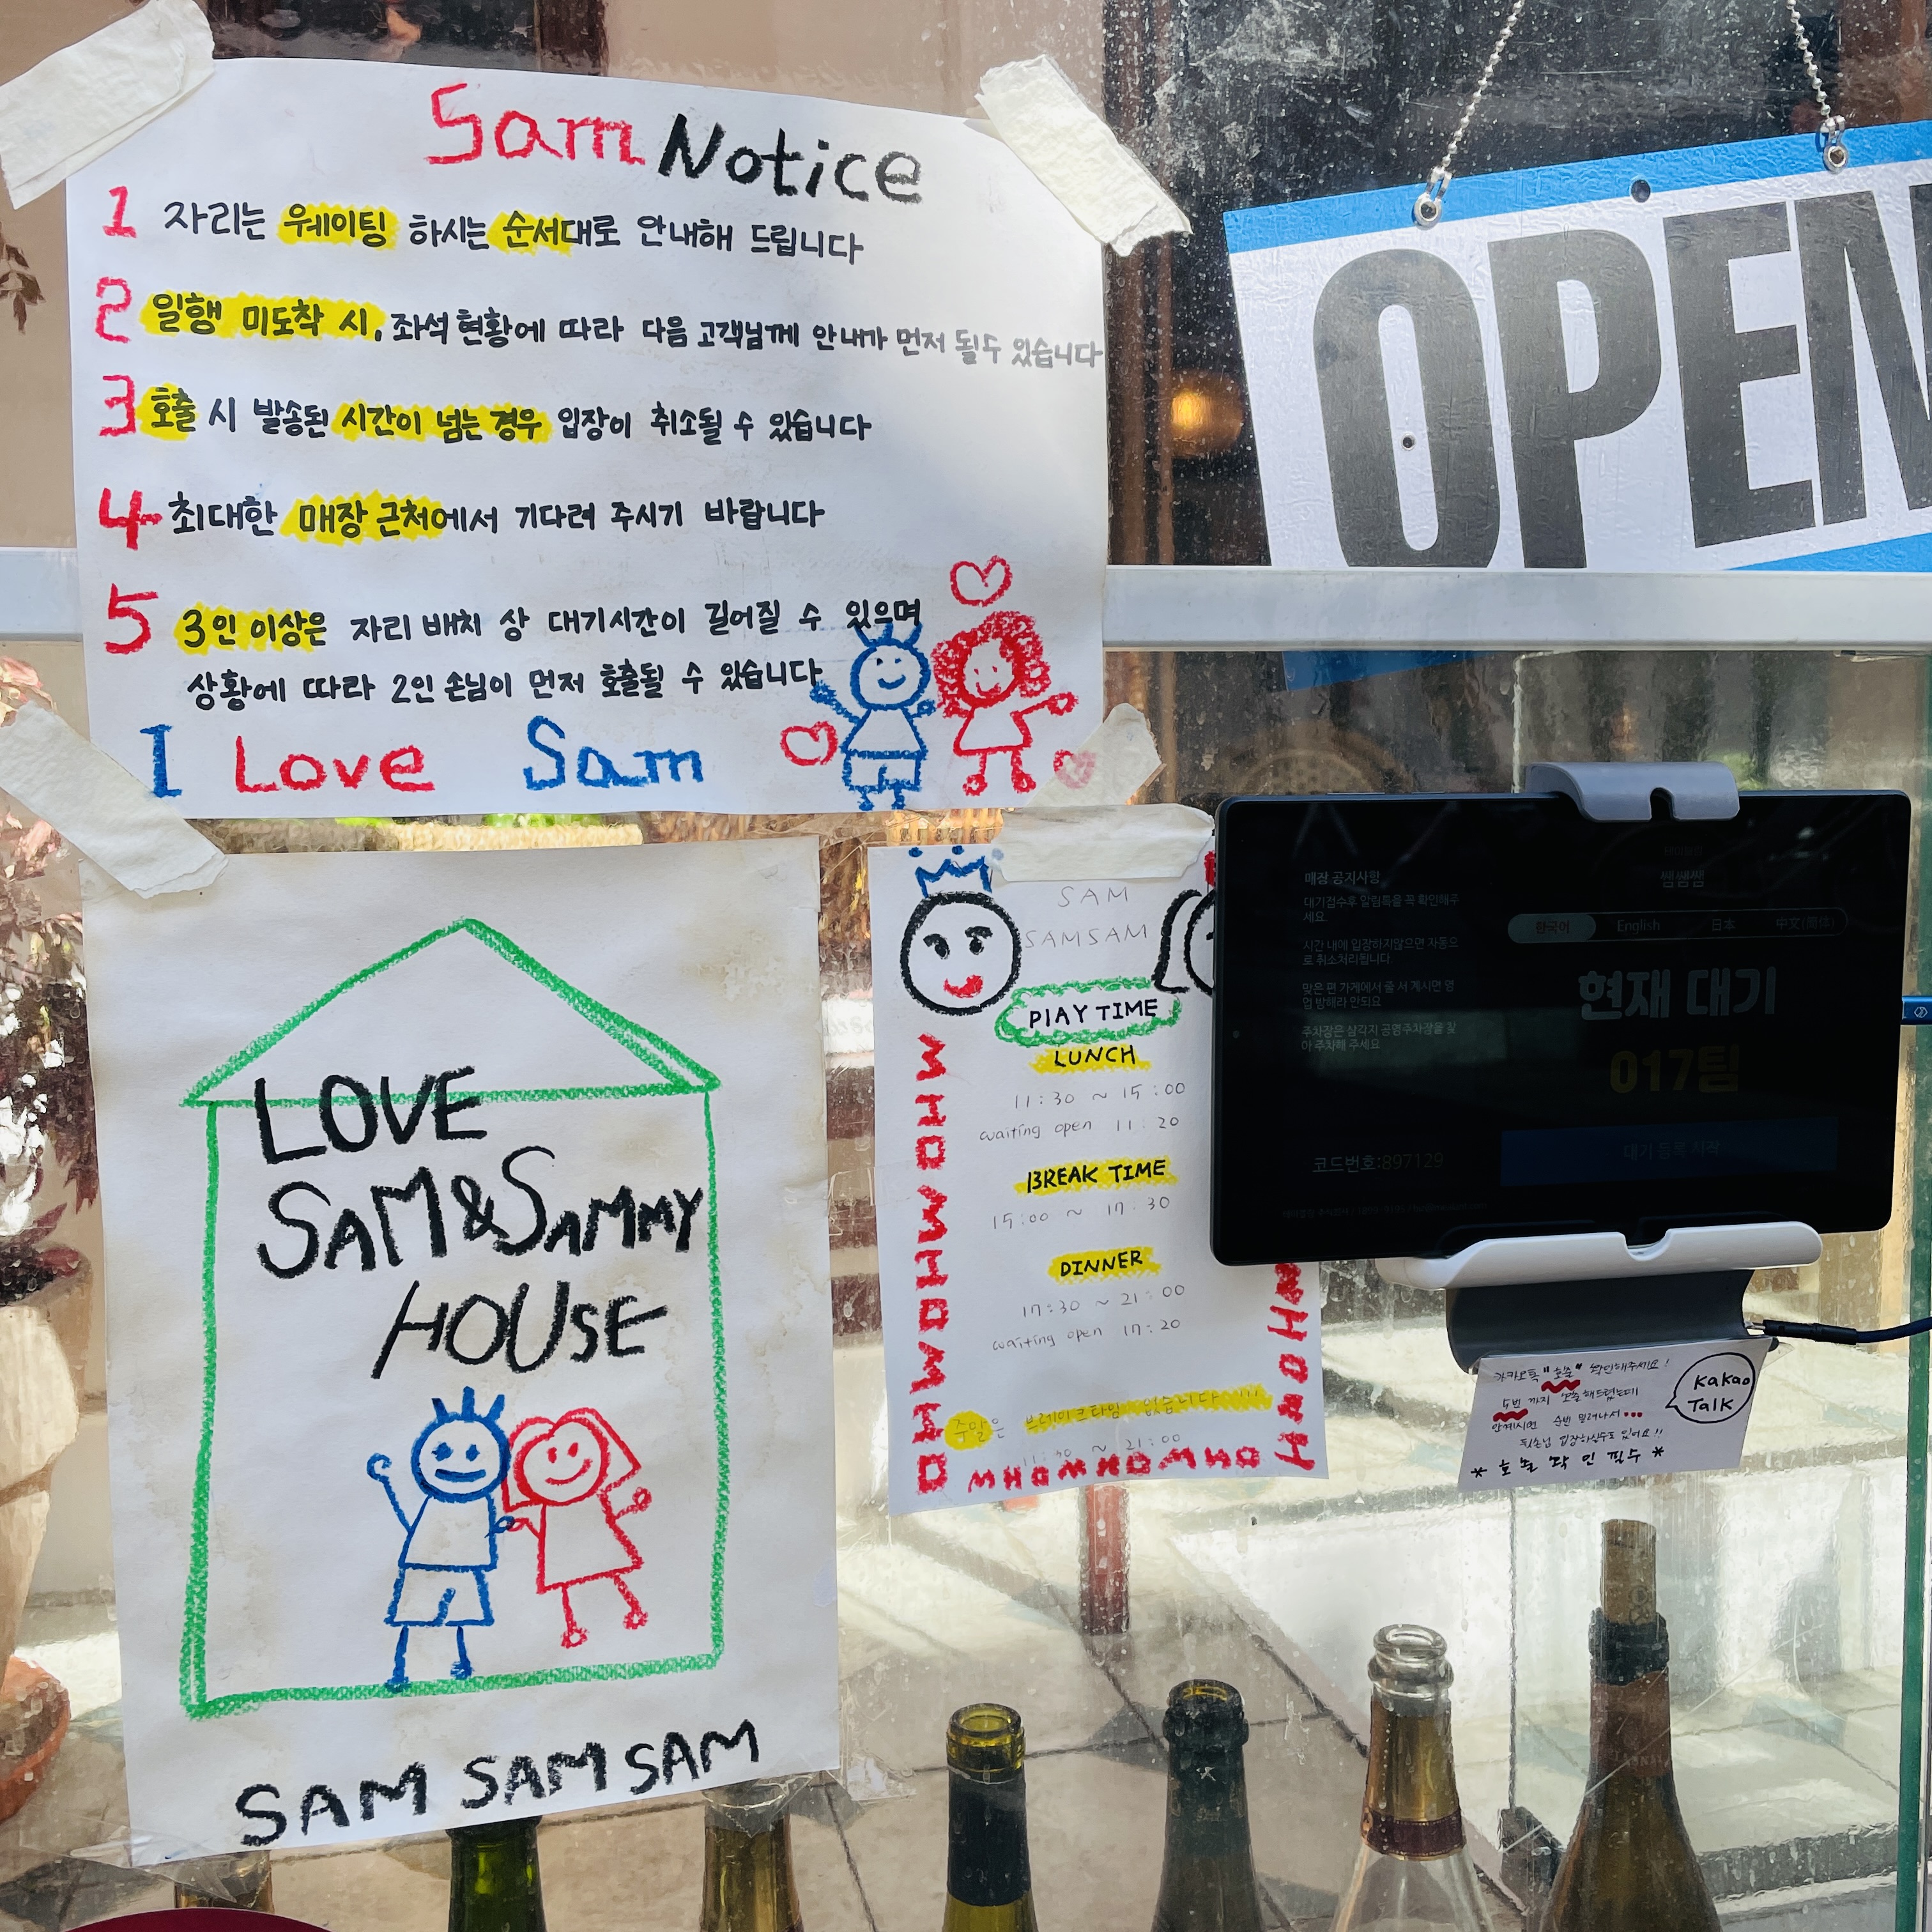 Sam Notice
1 자리는 웨이팅 하시는 순서대로 안내해 드립니다
2 일행 미도착 시, 좌석 현황에 따라 다음 고객님께 안내가 먼저 될 수 있습니다
3 호출 시 발송된 시간이 넘는 경우 입장이 취소될 수 있습니다
4 최대한 매장 근처에서 기다려 주시기 바랍니다
5 3인 이상은 자리 배치 상 대기시간이 길어질 수 있으며
상황에 따라 2인 손님이 먼저 호출될 수 있습니다
I Love Sam
OPEN
LOVE
SAM & SAMMY
HOUSE
SAM SAM SAM
SAM
SAMSAM
PLAY TIME
LUNCH
11:30 ~ 15:00
waiting open 11:20
BREAK TIME
15:00 ~ 17:30
DINNER
17:30 ~ 21:00
waiting open 17:20
주말은 브레이크타임 없습니다!!!
11:30 ~ 21:00
매장 공지사항
대기접수후 알림톡을 꼭 확인해주
세요.
시간 내에 입장하지않으면 자동으
로 취소처리됩니다.
맞은 편 가게에서 줄 서 계시면 영
업 방해라 안되요
주차장은 삼각지 공영주차장을 찾
아 주차해 주세요
코드번호:897129
쌤쌤쌤
한국어 English 日本 中文(简体)
현재 대기
017팀
대기 등록 시작
카카오톡 "호출" 확인해주세요!
5번 까지 호출해드렸는데
안계시면 순번 밀려나서...
뒷손님 입장하실수도 있어요!!
* 호출 확인 필수 *
Kakao
Talk